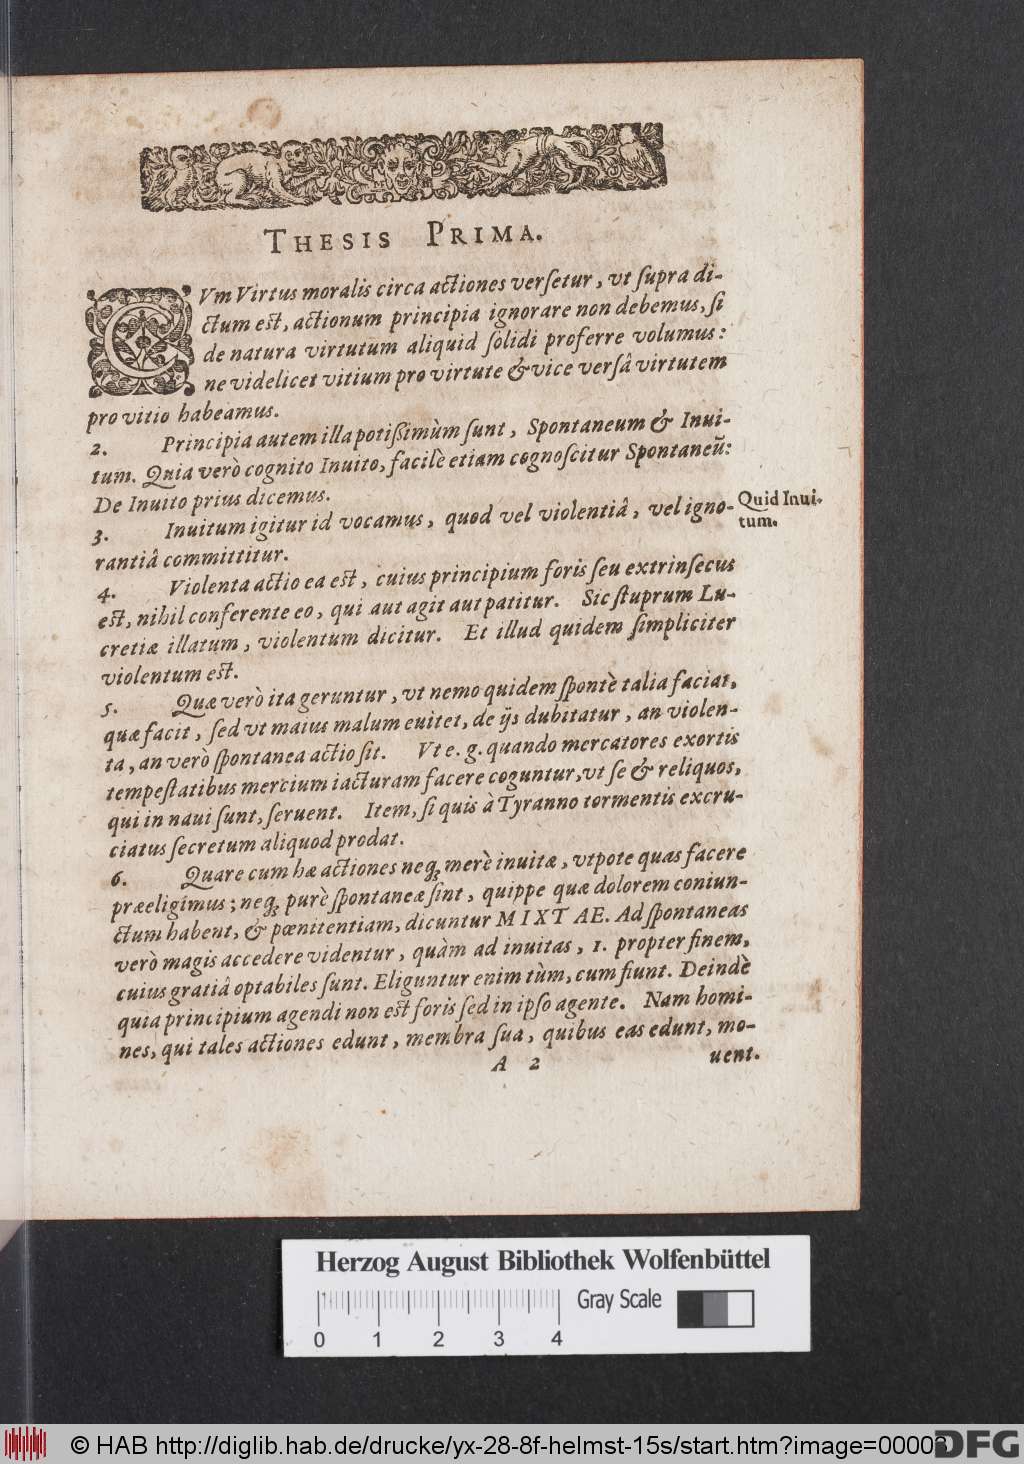 THESIS PRIMA.
CVm Virtus moralis circa actiones verſetur, vt ſupra di-
ctum eſt, actionum principia ignorare non debemus, ſi
de natura virtutum aliquid ſolidi proferre volumus:
ne videlicet vitium pro virtute & vice verſâ virtutem
pro vitio habeamus.
2. Principia autem illa potißimùm ſunt, Spontaneum & Inui-
tum. Quia verò cognito Inuito, facilè etiam cognoſcitur Spontaneũ:
De Inuito prius dicemus.
3. Inuitum igitur id vocamus, quod vel violentiâ, vel igno-
rantiâ committitur.
Quid Inui-
tum.
4. Violenta actio ea eſt, cuius principium foris ſeu extrinſecus
eſt, nihil conferente eo, qui aut agit aut patitur. Sic ſtuprum Lu-
cretiæ illatum, violentum dicitur. Et illud quidem ſimpliciter
violentum eſt.
5. Quæ verò ita geruntur, vt nemo quidem ſpontè talia faciat,
quæ facit, ſed vt maius malum euitet, de ijs dubitatur, an violen-
ta, an verò ſpontanea actio ſit. Vt e. g. quando mercatores exortis
tempeſtatibus mercium iacturam facere coguntur, vt ſe & reliquos,
qui in naui ſunt, ſeruent. Item, ſi quis à Tyranno tormentis excru-
ciatus ſecretum aliquod prodat.
6. Quare cum hæ actiones neqꝫ merè inuitæ, vtpote quas facere
præeligimus; neqꝫ purè ſpontaneæ ſint, quippe quæ dolorem coniun-
ctum habent, & pœnitentiam, dicuntur MIXTAE. Ad ſpontaneas
verò magis accedere videntur, quàm ad inuitas, 1. propter finem,
cuius gratiâ optabiles ſunt. Eliguntur enim tùm, cum fiunt. Deindè
quia principium agendi non eſt foris ſed in ipſo agente. Nam homi-
nes, qui tales actiones edunt, membra ſua, quibus eas edunt, mo-
A 2 uent.
Herzog August Bibliothek Wolfenbüttel
Gray Scale
0 1 2 3 4
© HAB http://diglib.hab.de/drucke/yx-28-8f-helmst-15s/start.htm?image=00003
DFG